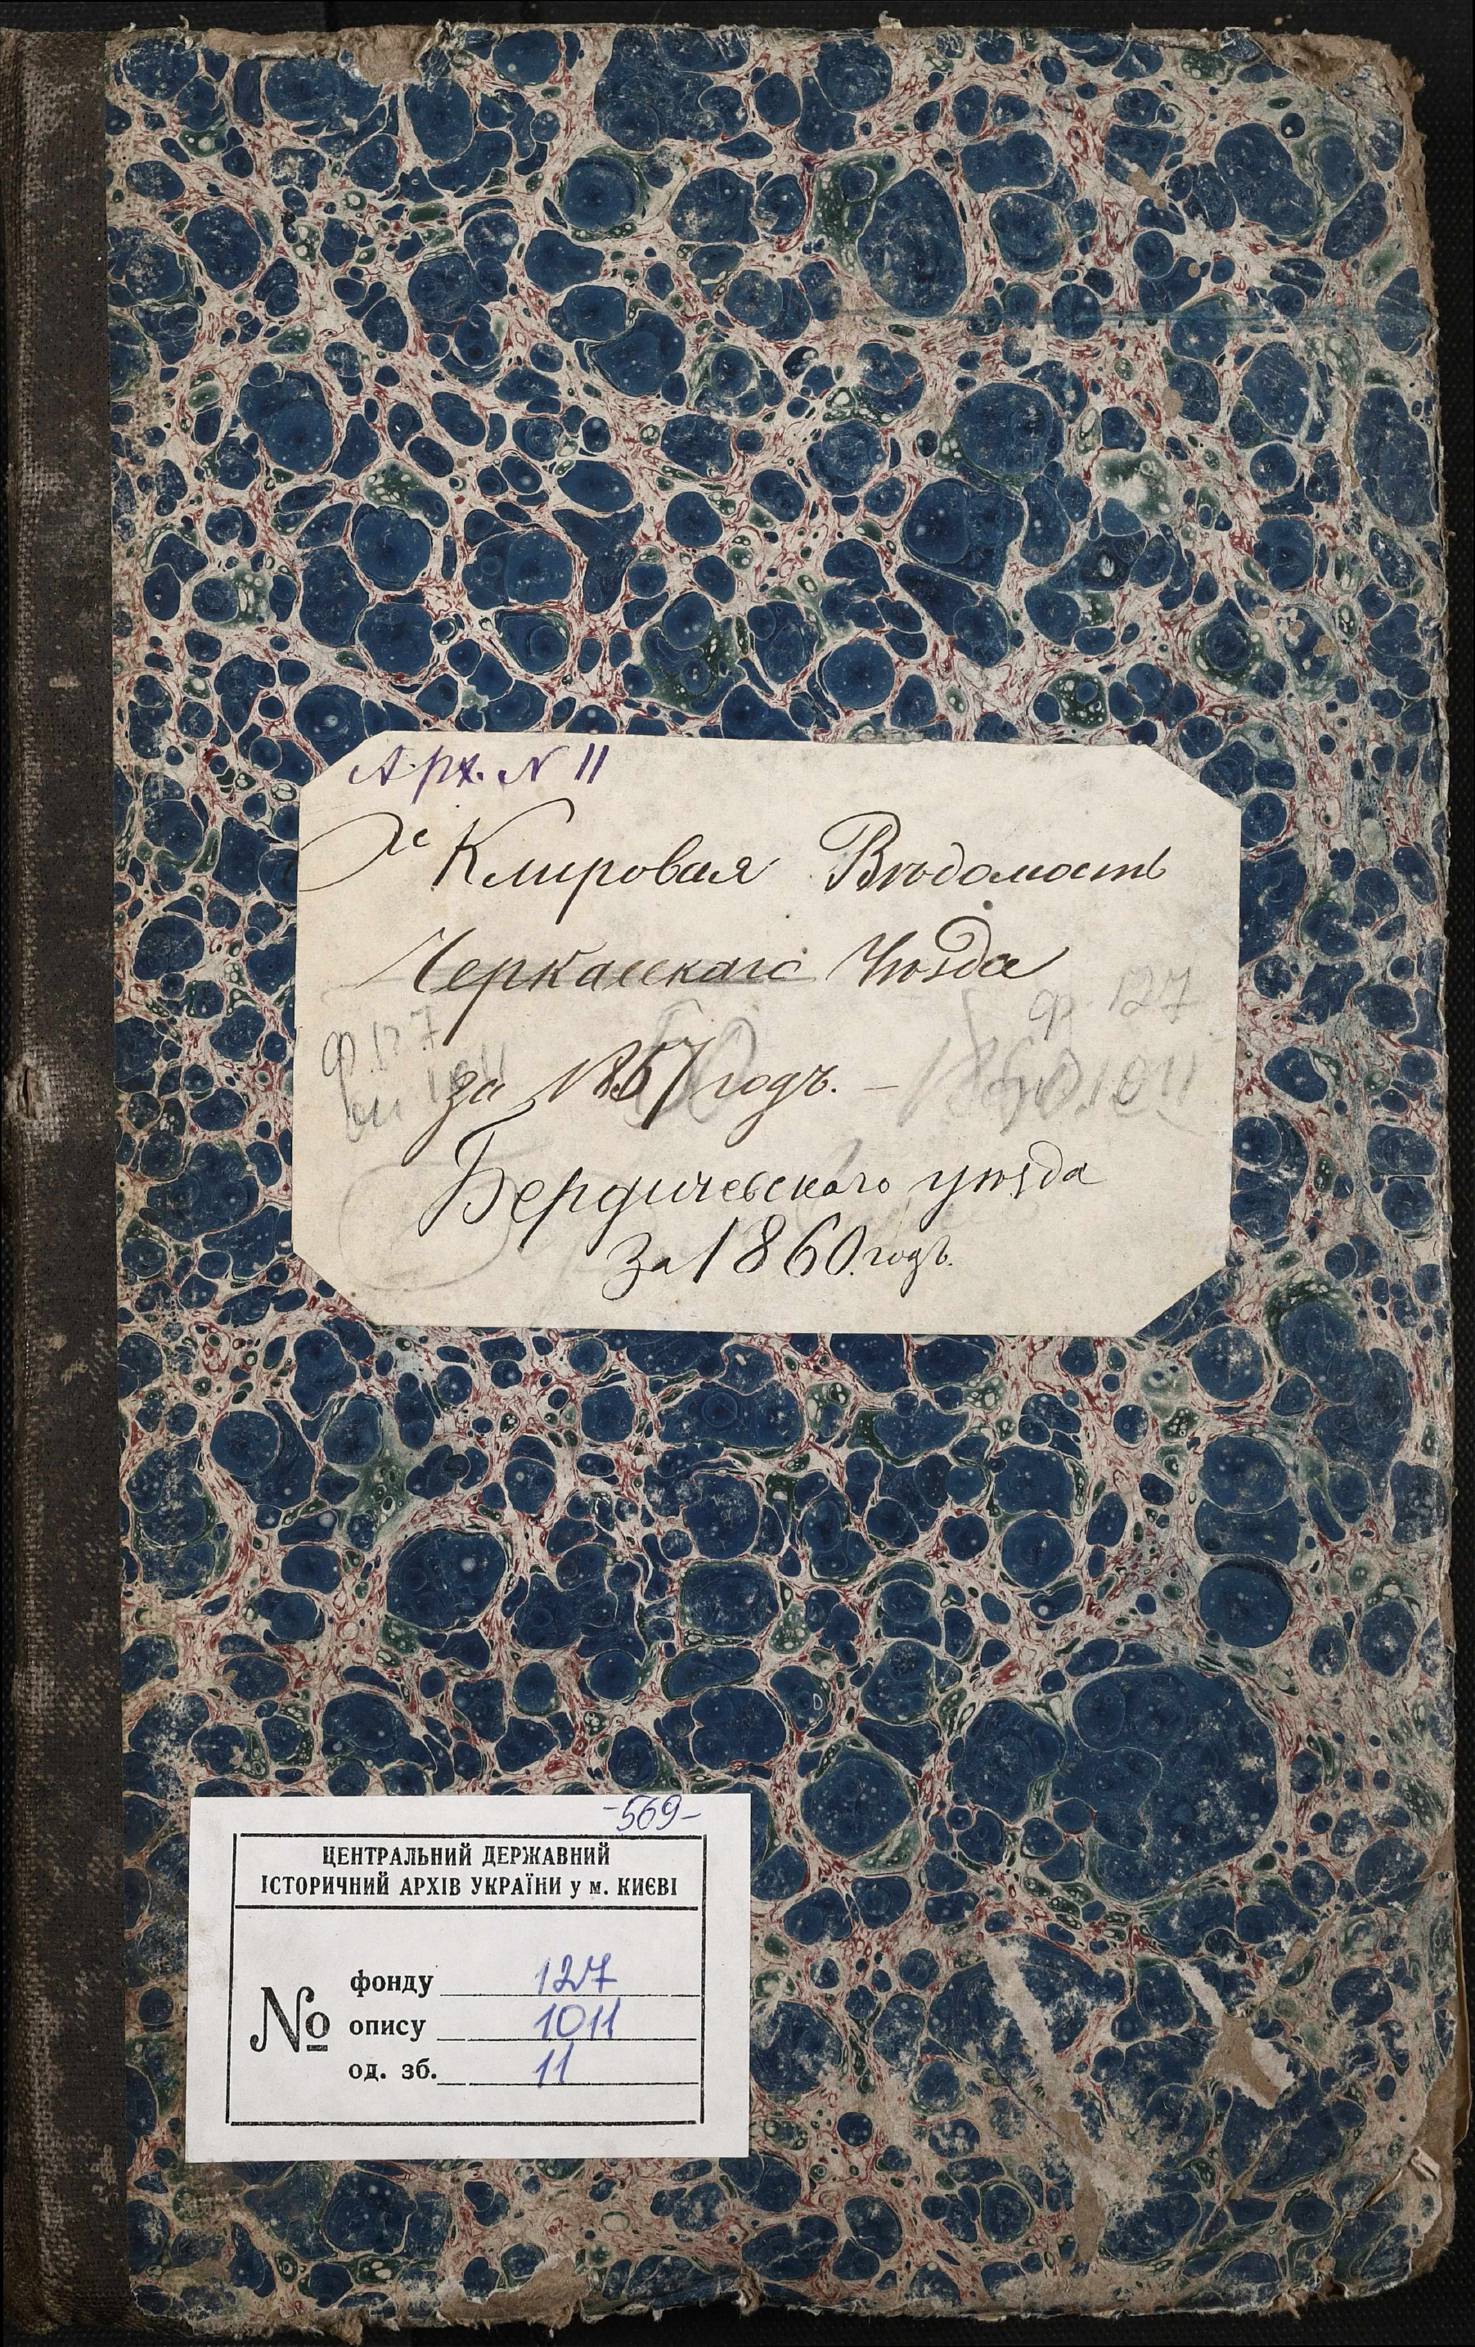 Арх. N 11
Клировая Вѣдомость
Черкасскаго Уѣзда
ф. 127
ф. 127
оп 1011
за 1857 годъ. – 1860 1011
Бердичевского уѣзда
за 1860 годъ.
-569-
ЦЕНТРАЛЬНИЙ ДЕРЖАВНИЙ
ІСТОРИЧНИЙ АРХІВ УКРАЇНИ у м. КИЄВІ
№
фонду 127
опису 1011
од. зб. 11